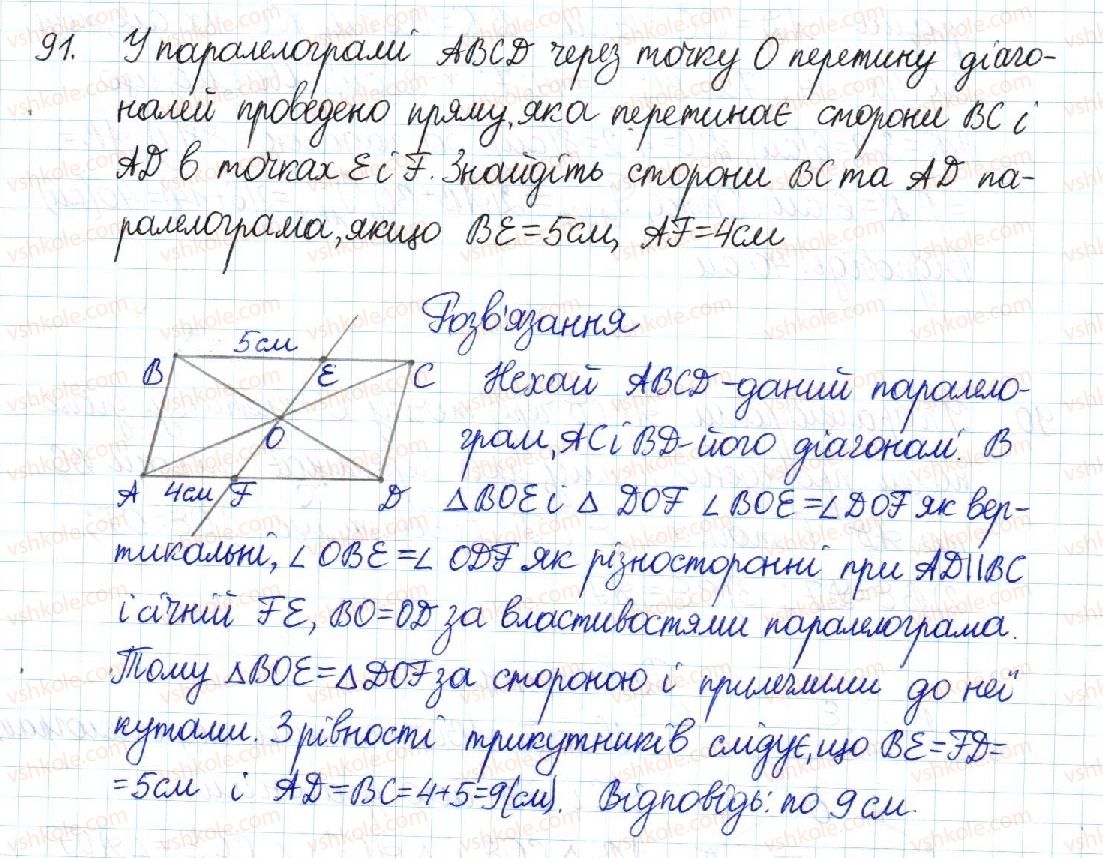 91. У паралелограмі ABCD через точку O перетину діаго-
налей проведено пряму, яка перетинає сторони BC і
AD в точках E і F. Знайдіть сторони BC та AD па-
ралелограма, якщо BE=5см, AF=4см
Розв'язання
5см
B E C
Нехай ABCD-даний паралело-
грам, AC і BD-його діагоналі. В
O
A 4см F D
△BOE і △ DOF ∠BOE=∠DOF як вер-
тикальні, ∠OBE=∠ ODF як різносторонні при AD||BC
і січній FE, BO=OD за властивостями паралелограма.
Тому △BOE=△DOF за стороною і прилеглими до неї
кутами. З рівності трикутників слідує, що BE=FD=
=5см і AD=BC=4+5=9(см). Відповідь: по 9см.